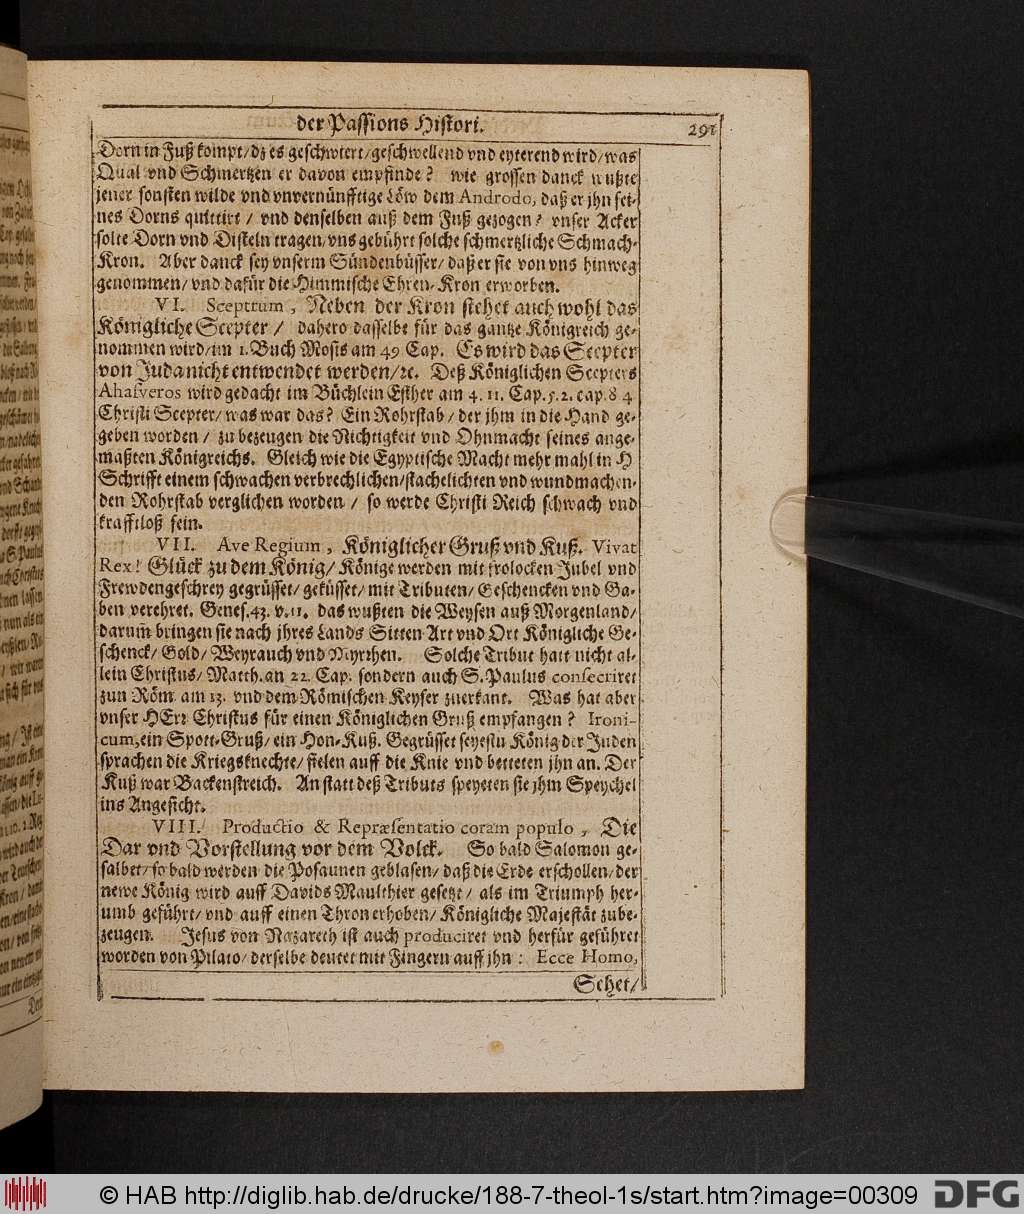 der Passions Histori. 291
Dorn in Fuß kompt/ dz es geschwiert/ geschwellend vnd eyterend wird/ was
Qual vnd Schmertzen er davon empfinde? wie grossen danck wußte
jener sonsten wilde vnd vnvernünfftige Löw dem Androdo, daß er jhn sei-
nes Dorns quittirt / vnd denselben auß dem Fuß gezogen? vnser Acker
solte Dorn vnd Disteln tragen/ vns gebührt solche schmertzliche Schmach-
Kron. Aber danck sey vnserm Sündenbüsser/ daß er sie von vns hinweg
genommen/ vnd dafür die Himmische Ehren-Kron erworben.
VI. Sceptrum, Neben der Kron stehet auch wohl das
Königliche Scepter / dahero dasselbe für das gantze Königreich ge-
nommen wird/ im 1. Buch Mosis am 49 Cap. Es wird das Scepter
von Juda nicht entwendet werden/ ꝛc. Deß Königlichen Scepters
Ahasveros wird gedacht im Büchlein Esther am 4. 11. Cap. 5. 2. cap. 8 4
Christi Scepter/ was war das? Ein Rohrstab / der jhm in die Hand ge-
geben worden / zu bezeugen die Nichtigkeit vnd Ohnmacht seines ange-
maßten Königreichs. Gleich wie die Egyptische Macht mehr mahl in H
Schrifft einem schwachen verbrechlichen/ stachelichten vnd wundmachen-
den Rohrstab verglichen worden / so werde Christi Reich schwach vnd
krafftloß sein.
VII. Ave Regium, Königlicher Gruß vnd Kuß. Vivat
Rex! Glück zu dem König/ Könige werden mit frolocken Jubel vnd
Frewdengeschrey gegrüsset/ geküsset/ mit Tributen/ Geschencken vnd Ga-
ben verehret. Genes. 43. v. 11. das wußten die Weysen auß Morgenland/
darum̃ bringen sie nach jhres Lands Sitten Art vnd Ort Königliche Ge-
schenck/ Gold/ Weyrauch vnd Myrrhen. Solche Tribut hatt nicht al-
lein Christus/ Matth. an 22. Cap. sondern auch S. Paulus consecriret
zun Röm am 13. vnd dem Römischen Keyser zuerkant. Was hat aber
vnser HErr Christus für einen Königlichen Gruß empfangen? Ironi-
cum, ein Spott-Gruß/ ein Hon-Kuß. Gegrüsset seyestu König der Juden
sprachen die Kriegsknechte/ fielen auff die Knie vnd betteten jhn an. Der
Kuß war Backenstreich. An statt deß Tributs speyeten sie jhm Speychel
ins Angesicht.
VIII. Productio & Repræsentatio coram populo, Die
Dar vnd Vorstellung vor dem Volck. So bald Salomon ge-
salbet/ so bald werden die Posaunen geblasen/ daß die Erde erschollen/ der
newe König wird auff Davids Maulthier gesetzt/ als im Triumph her-
umb geführt/ vnd auff einen Thron erhoben/ Königliche Majestät zube-
zeugen. Jesus von Nazareth ist auch produciret vnd herfür geführet
worden von Pilato/ derselbe deutet mit Fingern auff jhn: Ecce Homo,
Sehet/
© HAB http://diglib.hab.de/drucke/188-7-theol-1s/start.htm?image=00309 DFG